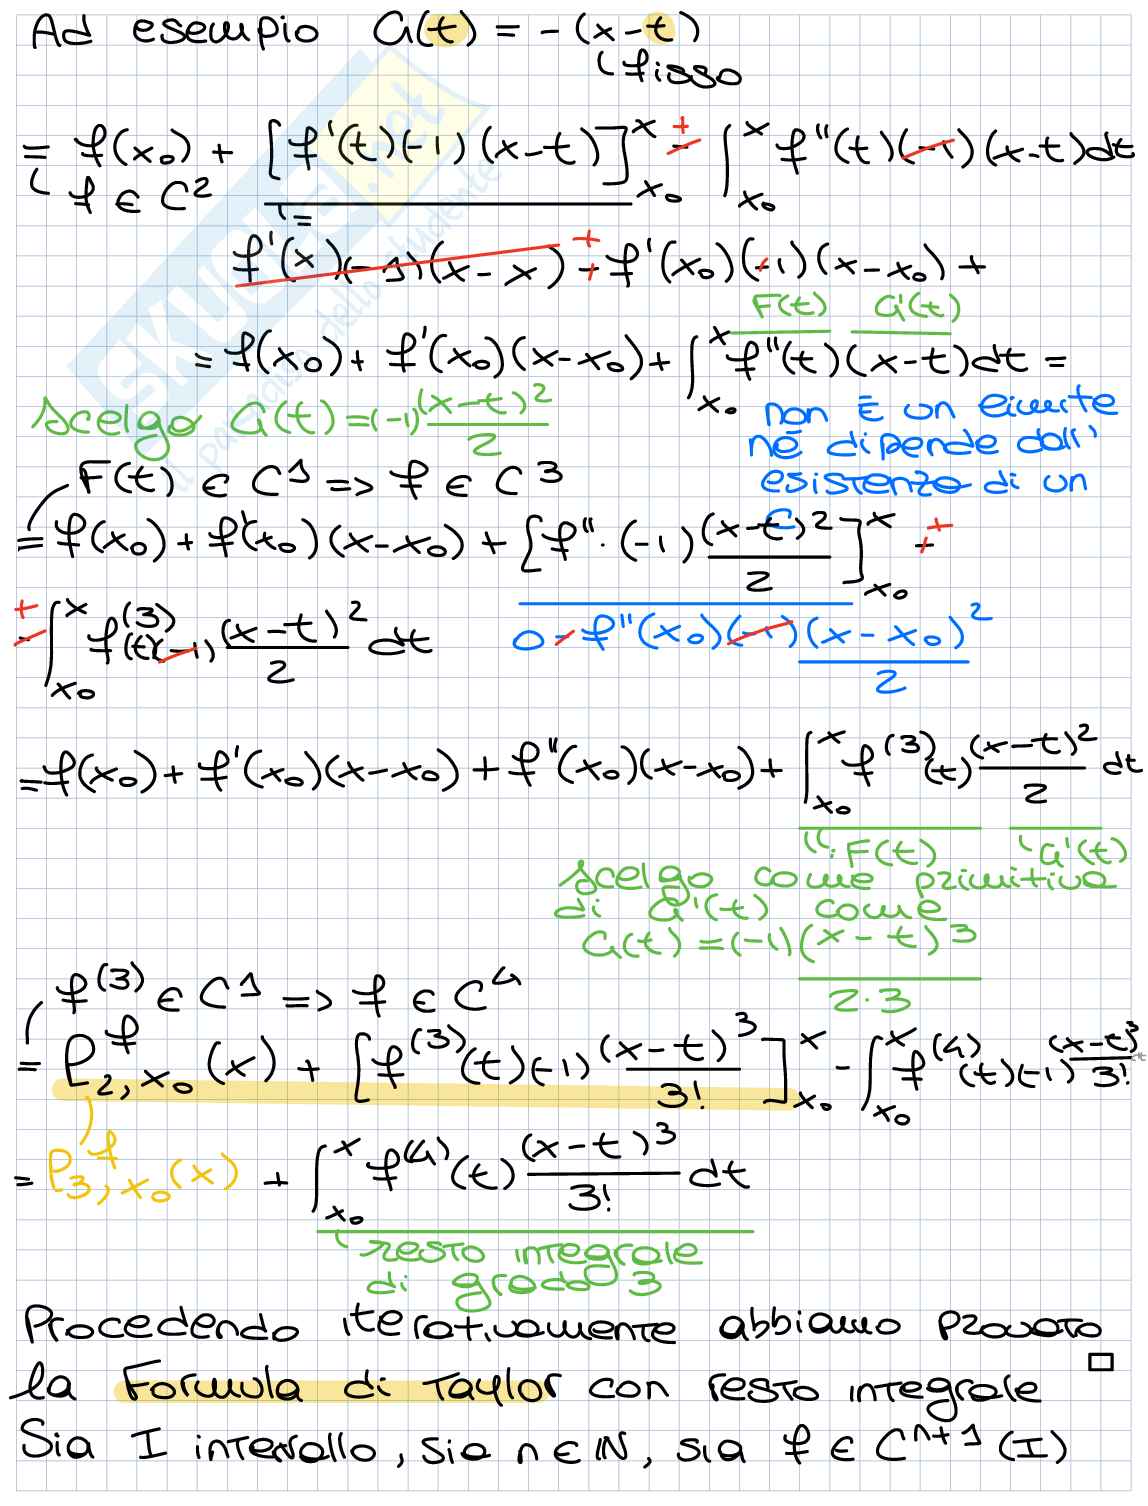 Ad esempio G(t) = -(x-t)
fisso
= f(x₀) + [f'(t)(-1)(x-t)]ₓ₀ˣ - + ∫ₓ₀ˣ f''(t)(-1)(x-t)dt
f ∈ C²
=
f'(x)(-1)(x-x) + - + f'(x₀)(-1)(x-x₀) +
F(t) G'(t)
= f(x₀) + f'(x₀)(x-x₀) + ∫ₓ₀ˣ f''(t)(x-t)dt =
Scelgo G(t) = (-1)(x-t)²/2
non è un limite
né dipende dall'
F(t) ∈ C¹ => f ∈ C³
esistenza di un
c
= f(x₀) + f'(x₀)(x-x₀) + [f''·(-1)(x-t)²/2]ₓ₀ˣ - +
+ - ∫ₓ₀ˣ f⁽³⁾(t)(-1)(x-t)²/2 dt
0 - f''(x₀)(-1)(x-x₀)²/2
= f(x₀) + f'(x₀)(x-x₀) + f''(x₀)(x-x₀) + ∫ₓ₀ˣ f⁽³⁾(t)(x-t)²/2 dt
F(t) G'(t)
Scelgo come primitiva
di G'(t) come
G(t) = (-1)(x-t)³/2·3
f⁽³⁾ ∈ C¹ => f ∈ C⁴
= P₂,ₓ₀ᶠ(x) + [f⁽³⁾(t)(-1)(x-t)³/3!]ₓ₀ˣ - ∫ₓ₀ˣ f⁽⁴⁾(t)(-1)(x-t)³/3! dt
= P₃,ₓ₀ᶠ(x) + ∫ₓ₀ˣ f⁽⁴⁾(t)(x-t)³/3! dt
resto integrale
di grado 3
Procedendo iterativamente abbiamo provato
la Formula di Taylor con resto integrale □
Sia I intervallo, sia n∈ℕ, sia f ∈ Cⁿ⁺¹(I)
SKUOLA.net